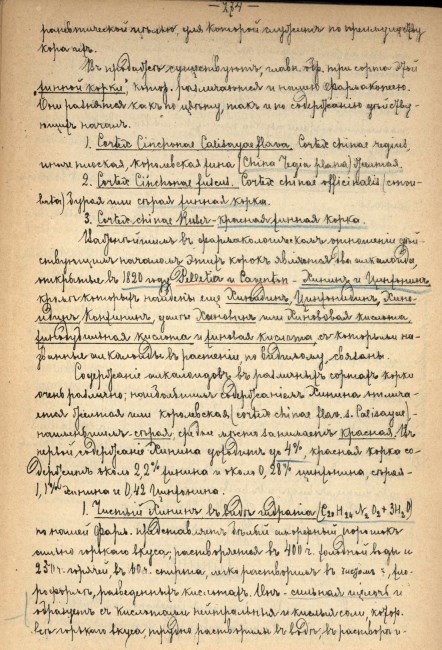 — 774 —
терапевтической целью, для которой служитъ по преимуществу
кора er.
Въ продажѣ существуютъ, главн. обр. три сорта этой
"хинной корки", котор. различаются и нашею Фармакопею.
Они разнятся какъ по цвѣту, такъ и по содержанію дѣйству-
ющихъ началъ.
1. Cortex Cinchonae Calisayae flava. Cortex chinae regius,
иначе плоская, королевская хина (China regia plana) желтая.
2. Cortex Cinchonae fuscus. Cortex chinae officinalis
бурая или сѣрая хинная корка.
3. Cortex chinae Ruber - красная хинная корка.
Важнѣйшимъ въ фармакологическомъ отношеніи дѣй-
ствующимъ началомъ этихъ корокъ являются два алкалоида,
открытые въ 1820 году Pelletier и Caventou - Хининъ и Цинхонинъ
кромѣ которыхъ найдены еще Хинидинъ, Цинхонидинъ, Хини-
кислота,
кислота и хиновая кислота съ которыми на-
званные алкалоиды въ растеніи по видимому, связаны.
Содержаніе алкалоидовъ въ различныхъ сортахъ корки
очень различно; наибольшимъ содержаніемъ Хинина отлича-
ется желтая или королевская (cortex chinae flav. s. Calisayae) -
наименьшимъ - сѣрая, среднее мѣсто занимаетъ красная. Въ
первой содержаніе Хинина доходитъ до 4%, красная корка со-
держитъ около 2,2% хинина и около 0,28% цинхонина, сѣрая -
1,1% хинина и 0,42 Цинхонина.
1. Чистый Хининъ въ видѣ гидрата (C20 H24 N2 O2 + 3H2O)
по нашей Фарм. представляетъ бѣлый аморфный порошокъ
сильно горькаго вкуса; растворяется въ 400 ч. холодной воды и
250 ч. горячей, въ 60 ч. спирта, легко растворимъ въ хло-
роформѣ, разведенныхъ кислотахъ. Онъ - сильная щелочь и
образуетъ съ кислотами нейтральныя и кислыя соли, котор.
горькаго вкуса, трудно растворимы въ водѣ, въ растворѣ и-